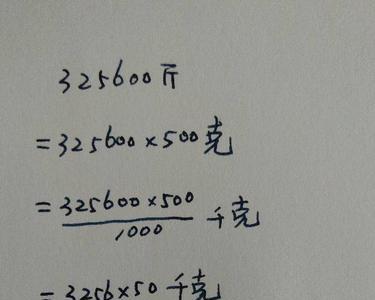 325600斤
=325600×500克
=325600×500/1000 千克
=3256×50千克